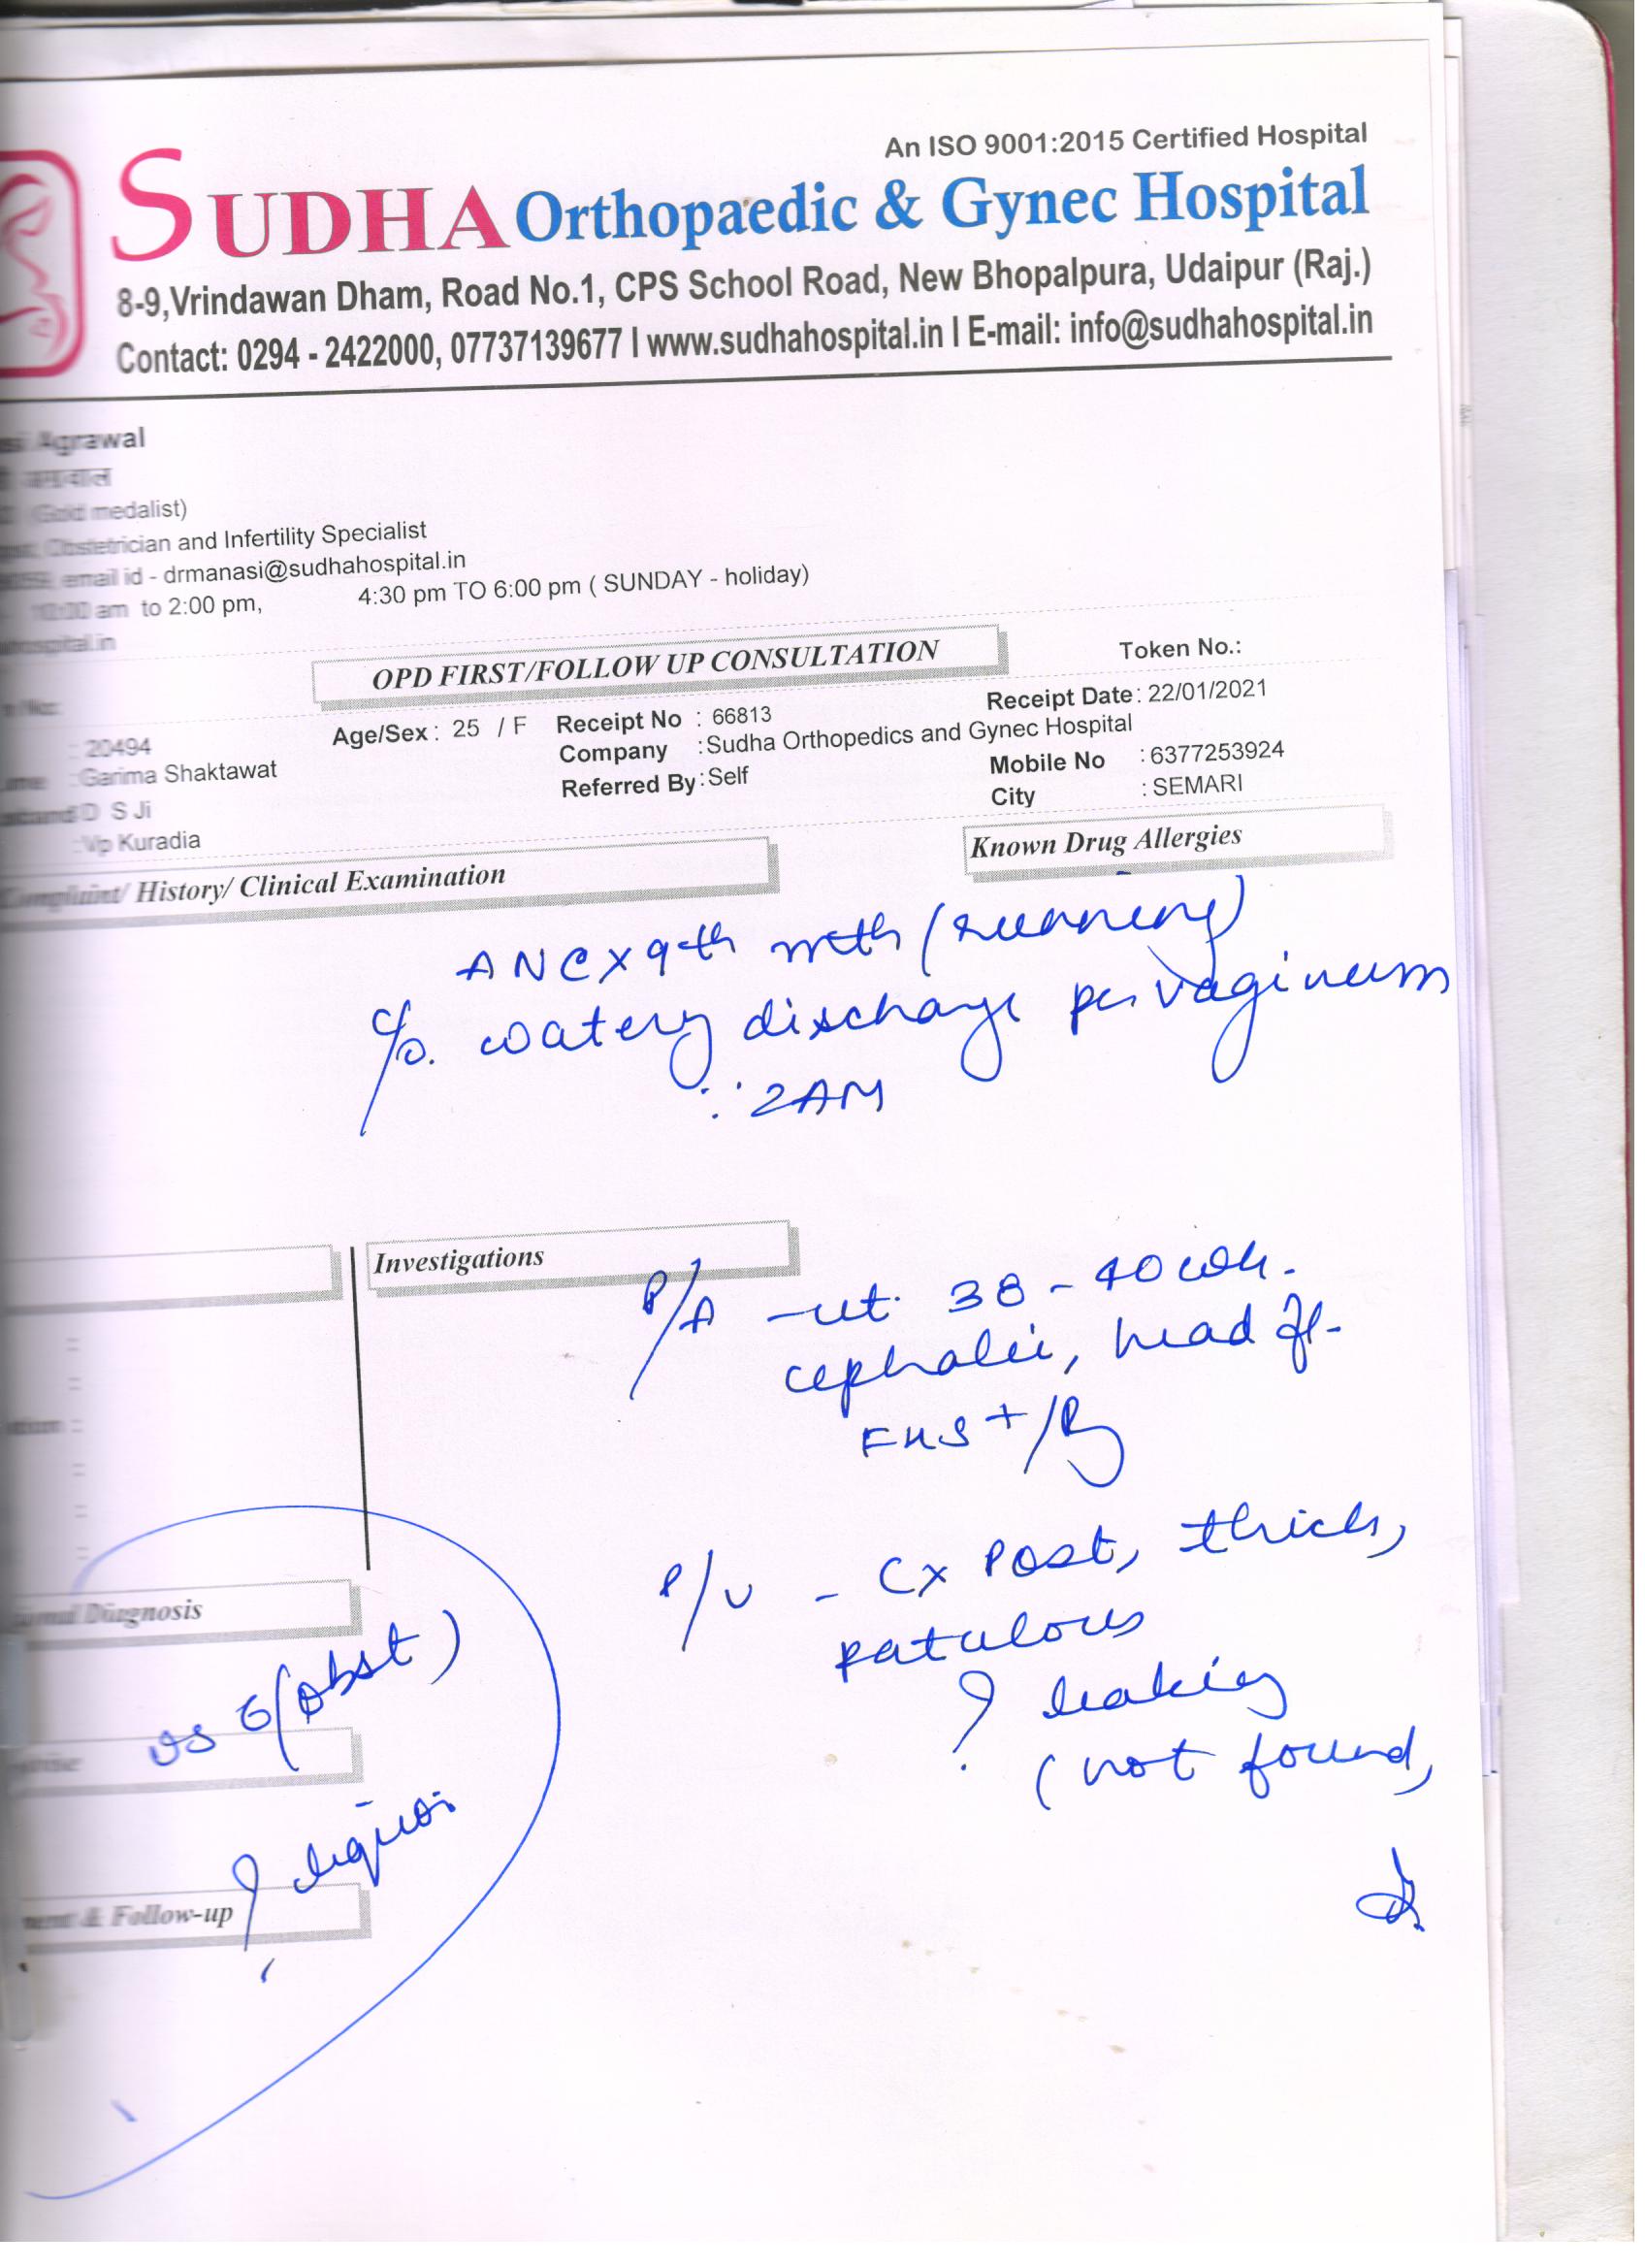 An ISO 9001:2015 Certified Hospital
SUDHA Orthopaedic & Gynec Hospital
8-9,Vrindawan Dham, Road No.1, CPS School Road, New Bhopalpura, Udaipur (Raj.)
Contact: 0294 - 2422000, 07737139677 I www.sudhahospital.in I E-mail: info@sudhahospital.in
Agrawal
(Gold medalist)
Obstetrician and Infertility Specialist
email id - drmanasi@sudhahospital.in
10:00 am to 2:00 pm, 4:30 pm TO 6:00 pm ( SUNDAY - holiday)
OPD FIRST/FOLLOW UP CONSULTATION
Token No.:
Age/Sex : 25 / F Receipt No : 66813 Receipt Date : 22/01/2021
: 20494 Company :Sudha Orthopedics and Gynec Hospital
:Garima Shaktawat Referred By:Self Mobile No :6377253924
D S Ji City : SEMARI
:Vp Kuradia
Complaint/ History/ Clinical Examination
Known Drug Allergies
ANC x 9th mth (running)
c/o. watery discharge per vaginum
∵ 2AM
Investigations
P/A - ut. 38 - 40 wk.
cephalic, head fl-
FHS +/R
P/V - Cx Post, thick,
patulous
? leaking
(not found,
Diagnosis
us G(obst)
? liquor
& Follow-up